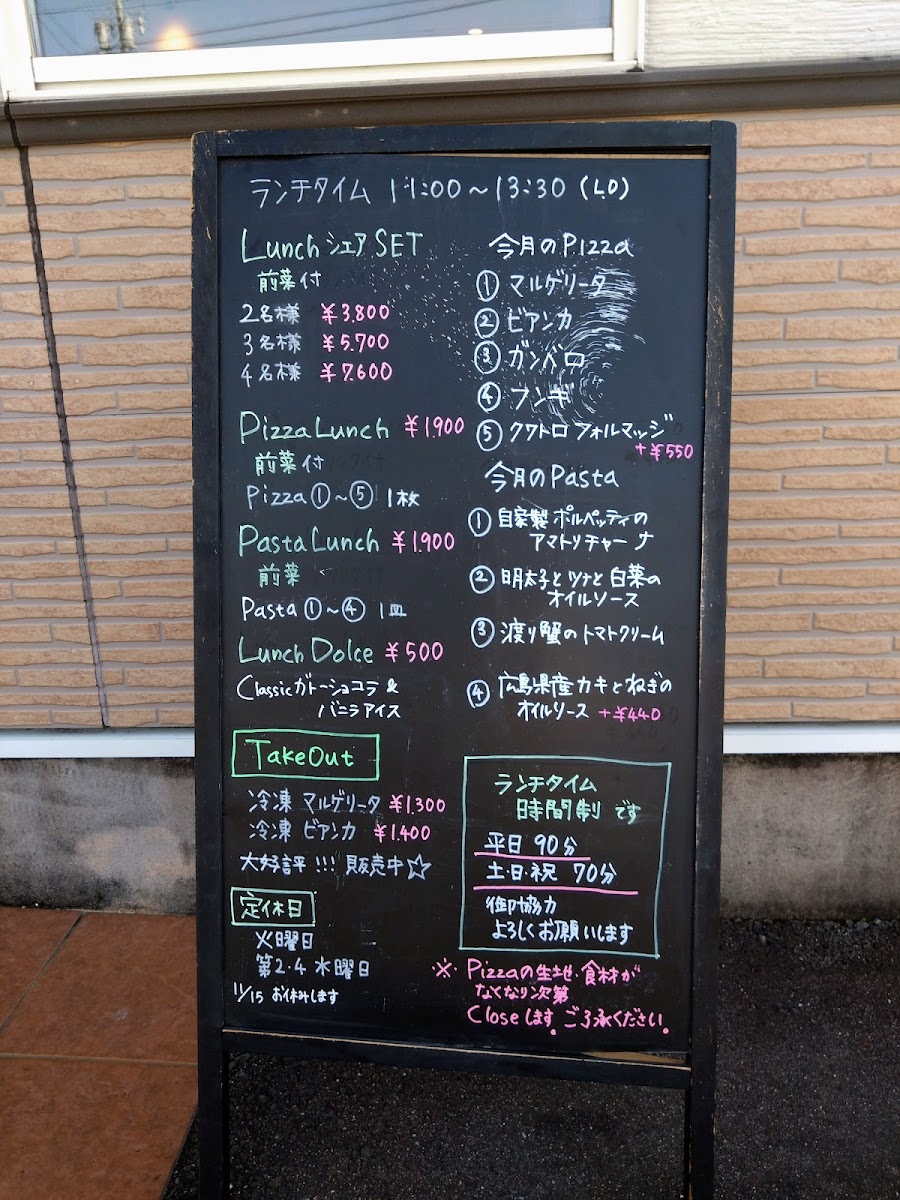 ランチタイム 11:00～13:30 (L.O)
Lunch シェア SET
前菜付
2名様 ¥3,800
3名様 ¥5,700
4名様 ¥7,600
Pizza Lunch ¥1,900
前菜付
Pizza①～⑤ 1枚
Pasta Lunch ¥1,900
前菜
Pasta①～④ 1皿
Lunch Dolce ¥500
Classicガトーショコラ &
バニラアイス
TakeOut
冷凍 マルゲリータ ¥1,300
冷凍 ビアンカ ¥1,400
大好評!!! 販売中☆
定休日
火曜日
第2・4 水曜日
11/15 お休みします
今月のPizza
① マルゲリータ
② ビアンカ
③ ガンベロ
④ フンギ
⑤ クワトロ フォルマッジ
+¥550
今月のPasta
① 自家製 ポルペッティの
アマトリチャーナ
② 明太子とツナと白菜の
オイルソース
③ 渡り蟹のトマトクリーム
④ 広島県産カキとねぎの
オイルソース +¥440
ランチタイム
時間制 です
平日 90分
土・日・祝 70分
御協力
よろしくお願いします
※ Pizzaの生地・食材が
なくなり次第
Closeします。ご了承ください。